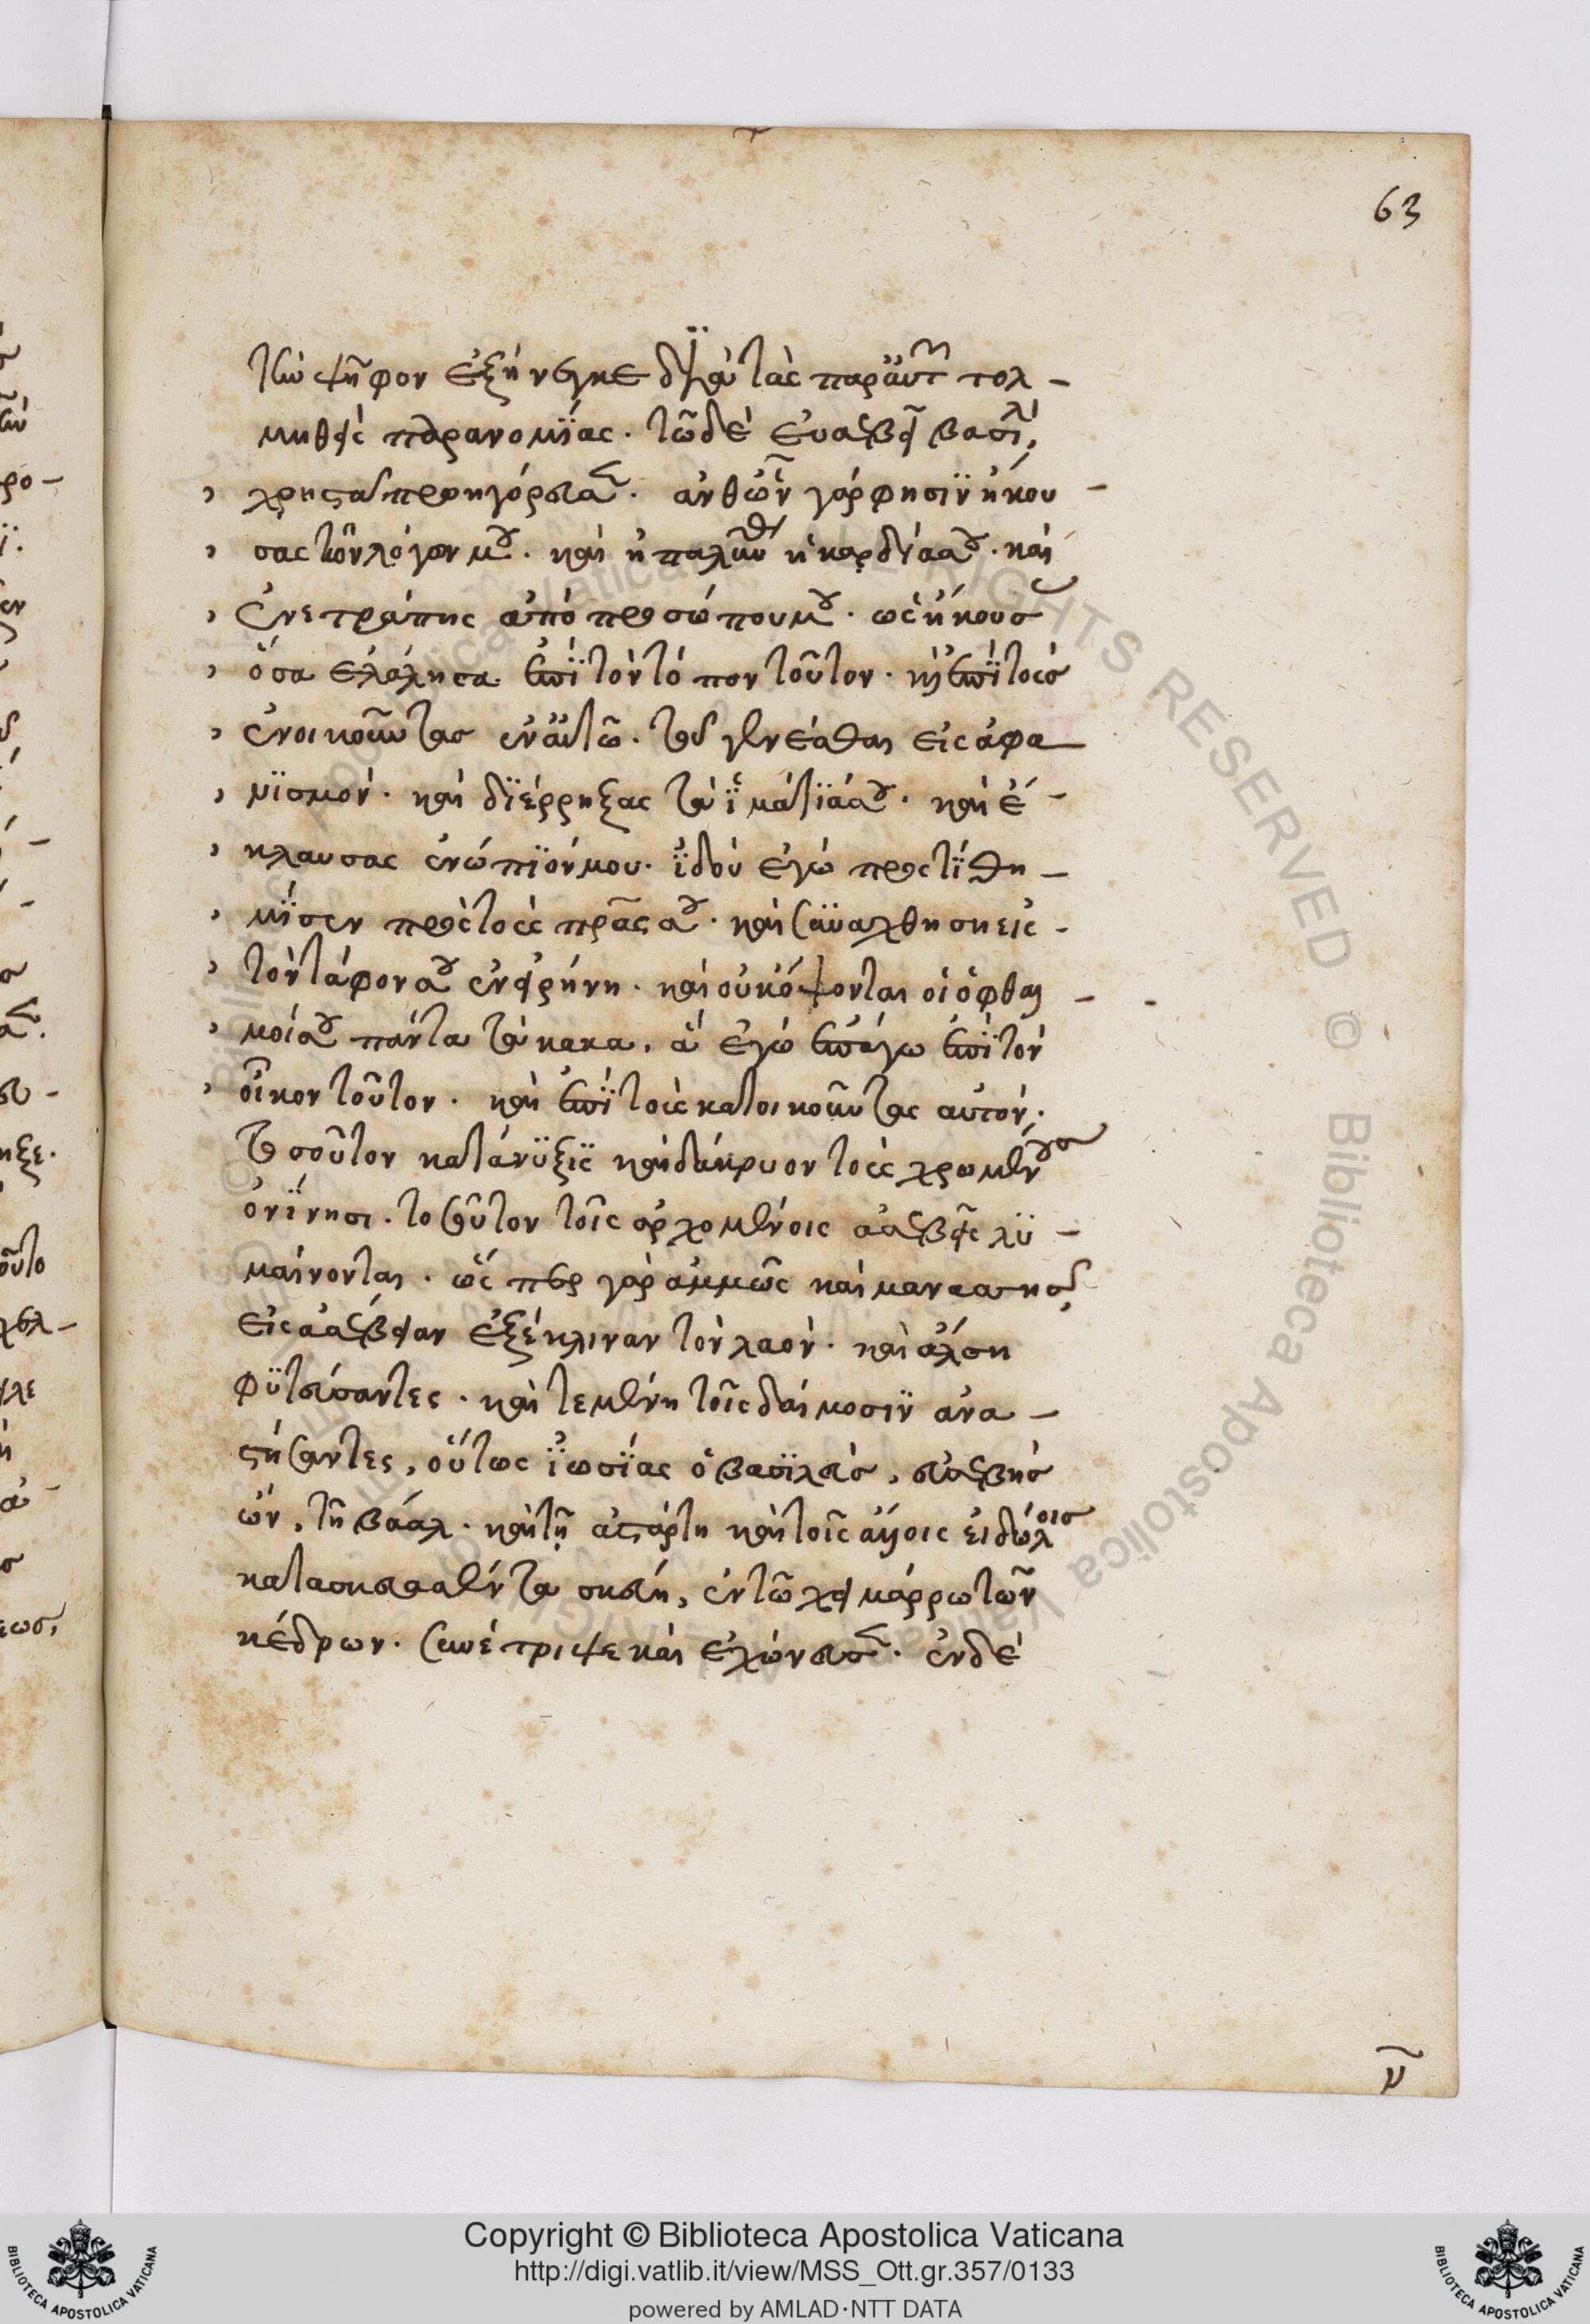 63
τὴν ψῆφον ἐξήνεγκε διὰ τὰς παρ' αὐτῶν τολ-
μηθείσας παρανομίας. τῶ δὲ εὐσεβεῖ βασιλεῖ,
χρηστὰ προηγόρευσεν. ἀνθ' ὧν γάρ φησιν ἤκου-
σας τῶν λόγων μου. καὶ ἡπαλύνθη ἡ καρδία σου. καὶ
ἐνετράπης ἀπὸ προσώπου μου. ὡς ἤκουσας
ὅσα ἐλάλησα ἐπὶ τὸν τόπον τοῦτον. καὶ ἐπὶ τοὺς
ἐνοικοῦντας ἐν αὐτῶ. τοῦ γενέσθαι εἰς ἀφα
νισμόν. καὶ διέρρηξας τὰ ἱμάτιά σου. καὶ ἔ-
κλαυσας ἐνώπιόν μου. ἰδοὺ ἐγὼ προστίθη-
μί σε πρὸς τοὺς πρας σου. καὶ συναχθήση εἰς-
τὸν τάφον σου ἐν εἰρήνη. καὶ οὐκ όψονται οἱ ὀφθαλ-
μοί σου πάντα τὰ κακα, ἃ ἐγὼ ἐπάγω ἐπὶ τὸν
οἶκον τοῦτον. καὶ ἐπὶ τοὺς κατοικοῦντας αὐτόν.
τοσοῦτον κατάνυξις καὶ δάκρυον τοὺς χρωμένους
ὀνίνησι. τοσοῦτον τοῖς ἀρχομένοις ἀσεβεῖς λυ-
μαίνονται. ὥσπερ γὰρ ἀμμὼς καὶ μανασσῆς,
εἰς ἀσέβειαν ἐξέκλιναν τὸν λαόν. καὶ ἄλση
φυτεύσαντες. καὶ τεμένη τοῖς δαίμοσιν ἀνα-
στήσαντες, οὕτως ἰωσίας ὁ βασιλεύς, εὐσεβὴς
ὤν, τῆ βάαλ. καὶ τῆ ἀστάρτη καὶ τοῖς ἄλλοις εἰδώλοις
κατασκευασθέντα σκεύη, ἐν τῶ χειμάρρω τῶν
κέδρων. συνέτριψε καὶ ἐχώνευσεν. ἐν δὲ
ν
Copyright © Biblioteca Apostolica Vaticana
http://digi.vatlib.it/view/MSS_Ott.gr.357/0133
powered by AMLAD·NTT DATA